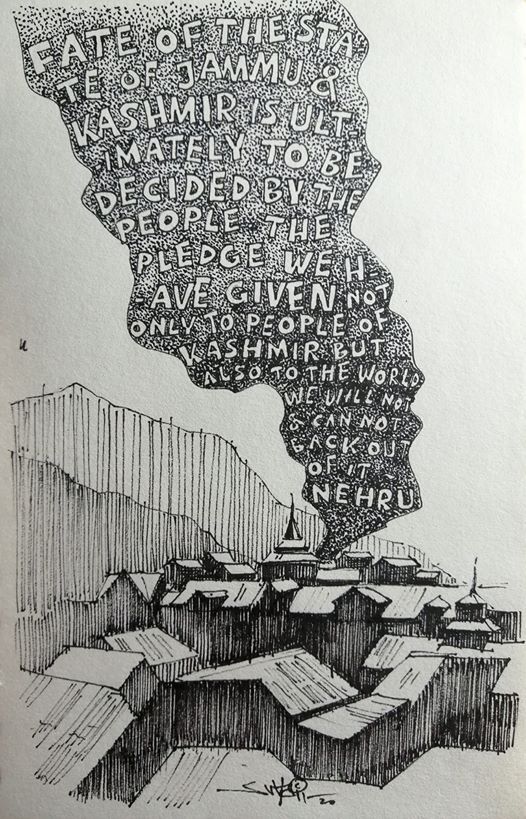 FATE OF THE STA-
TE OF JAMMU &
KASHMIR IS ULT-
IMATELY TO BE
DECIDED BY THE
PEOPLE THE
PLEDGE WE H-
-AVE GIVEN NOT
ONLY TO PEOPLE OF
KASHMIR BUT
ALSO TO THE WORLD
WE WILL NOT
& CAN NOT
BACK OUT
OF IT
NEHRU
20